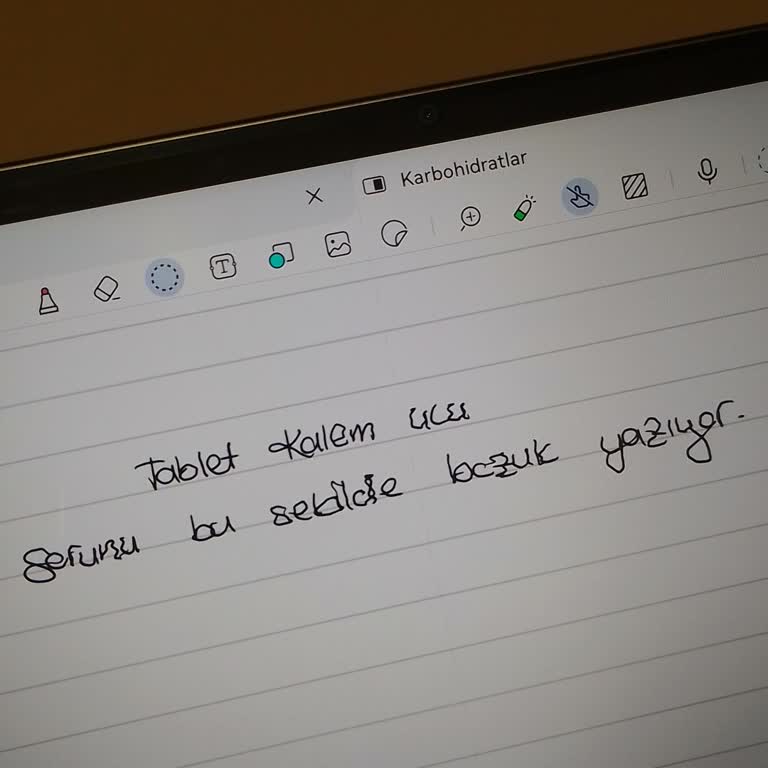 Karbohidratlar
Tablet Kalem ucu
sorunu bu sekilde bozuk yazıyor.